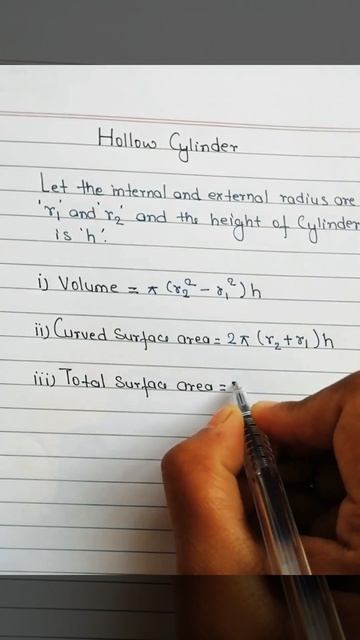 Hollow Cylinder
Let the internal and external radius are
'r₁' and 'r₂' and the height of Cylinder
is 'h'.
i) Volume = π (r₂² - r₁²) h
ii) Curved Surface area = 2π (r₂ + r₁) h
iii) Total Surface area =